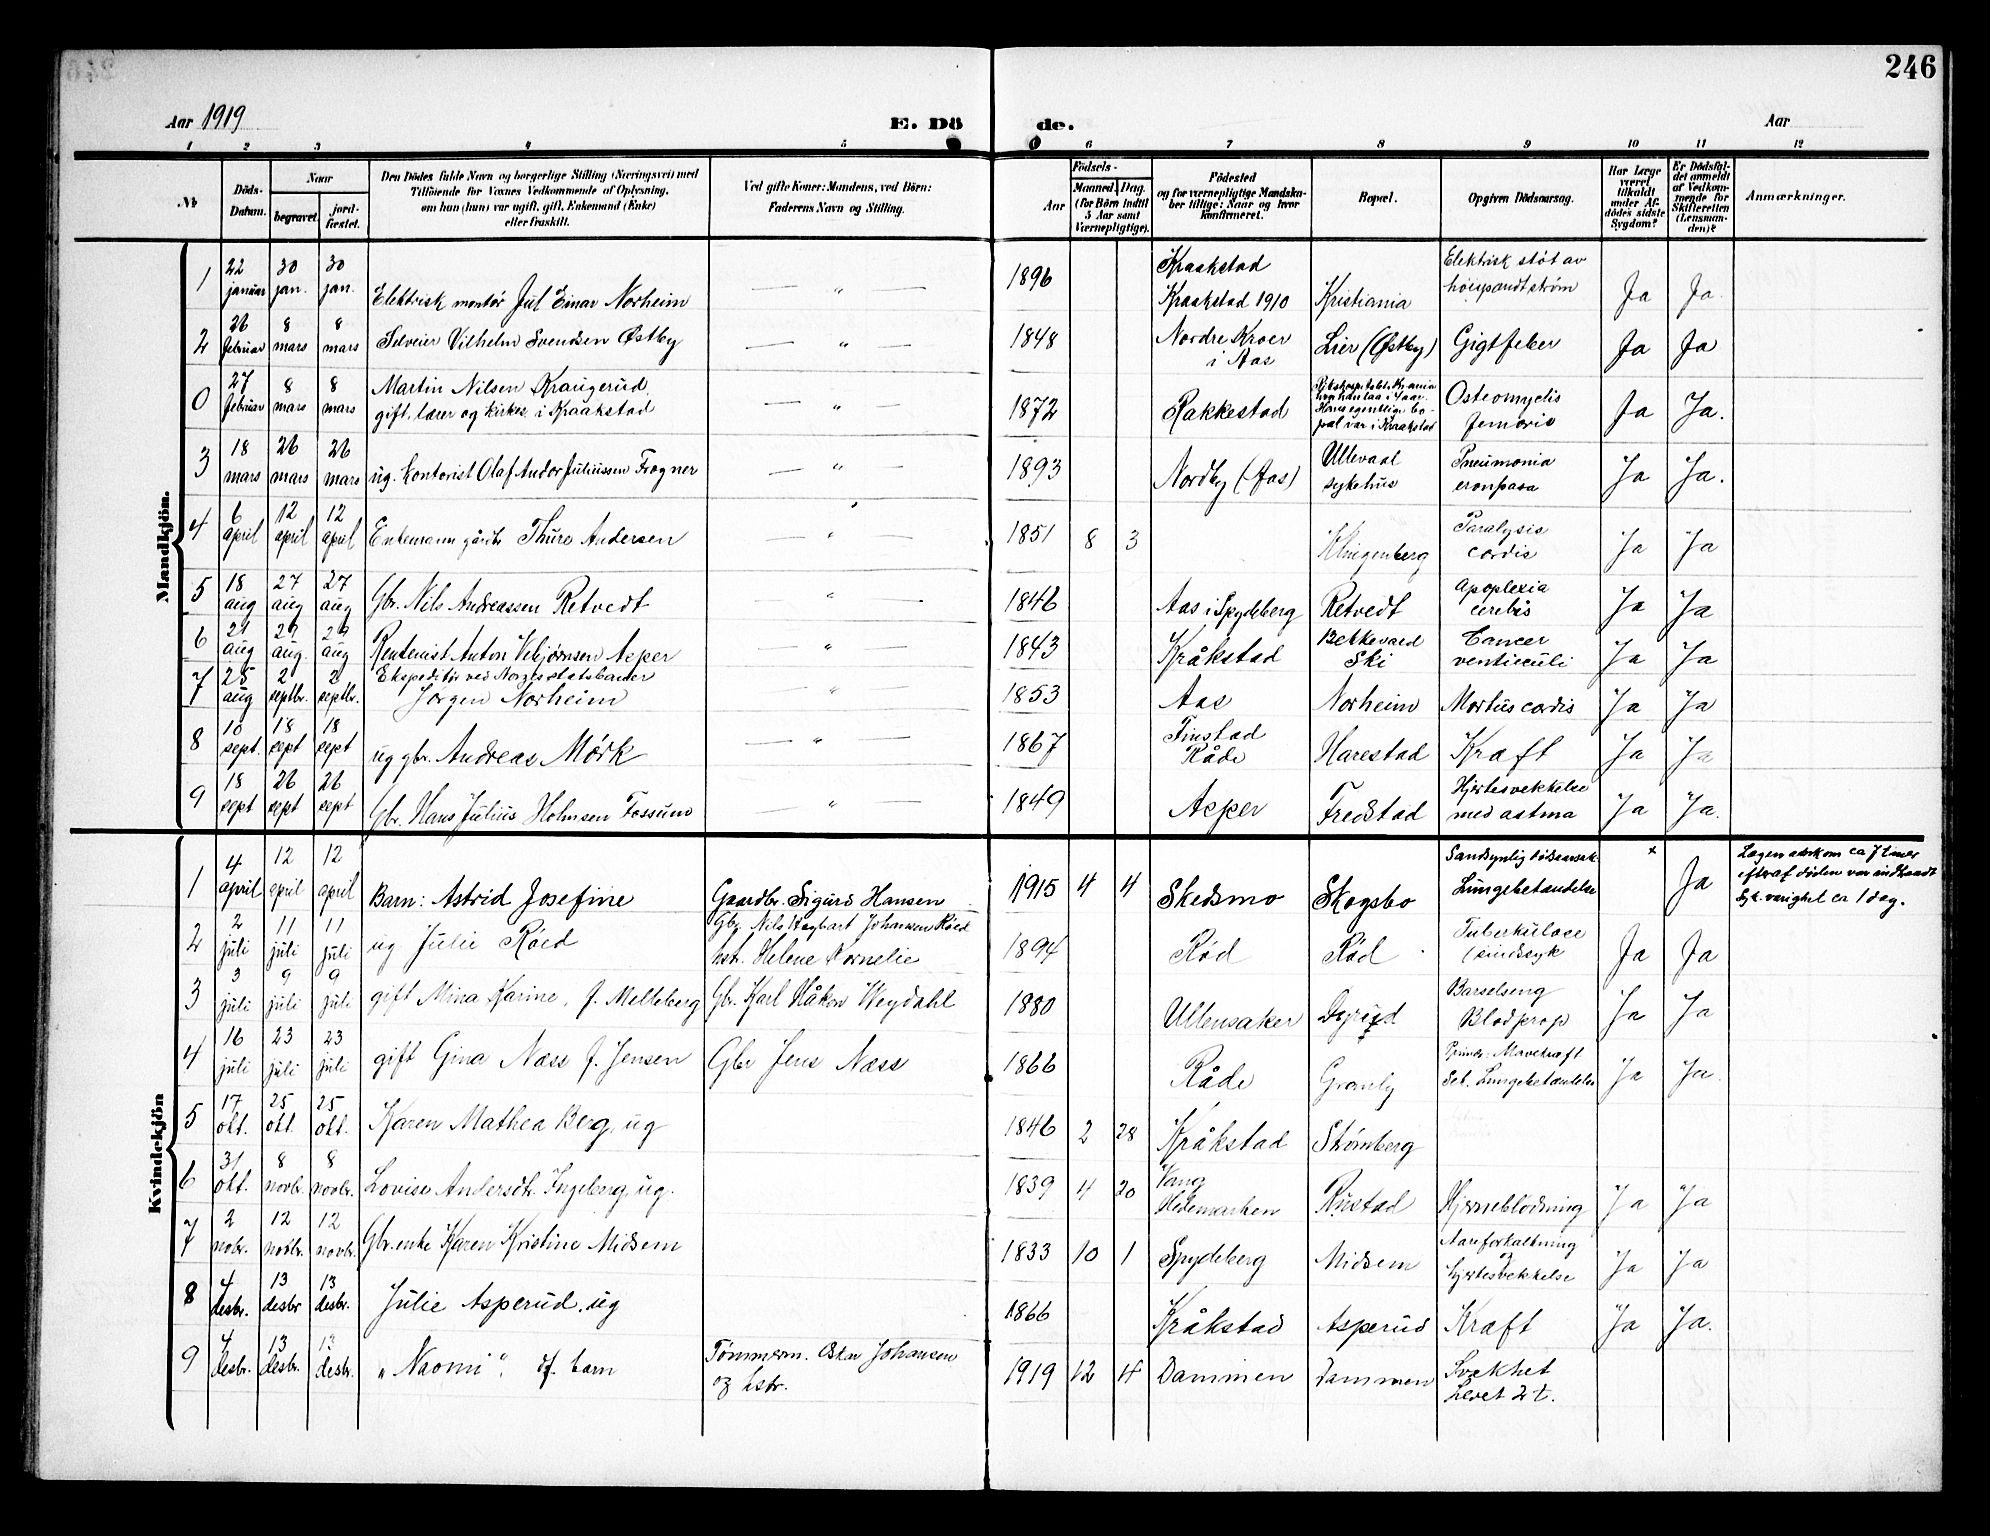 246
Aar 1919
E. Döde.
Aar
1 2 3 4 5 6 7 8 9 10 11 12
No
Döds-Datum.
Naar
begravet.
jordfæstet.
Den Dödes fulde Navn og borgerlige Stilling (Næringsvei) med
Tilföiende for Voxnes Vedkommende af Oplysning,
om han (hun) var ugift, gift, Enkemand (Enke)
eller fraskilt.
Ved gifte Koner: Mandens, ved Börn:
Faderens Navn og Stilling.
Födsels-
Aar
Maaned. Dag.
(for Börn indtil
5 Aar samt
Værnepligtige).
Födested
og for værnepligtige Mandska-
ber tillige: Naar og hvor
konfirmeret.
Bopæl.
Opgiven Dödsaarsag.
Har Læge
været
tilkaldt
under Af-
dödes sidste
Sygdom?
Er Dödsfal-
det anmeldt
af Vedkom-
mende for
Skifteretten
(Lensman-
den)?
Anmærkninger.
Mandkjön.
1 22 januar 30 jan. 30 jan. Elektrisk montör Jul Einar Norheim — " — 1896 Kraakstad Kraakstad 1910 Kristiania Elektrisk støt av høispændt strøm Ja Ja.
2 26 februar 8 mars 8 mars Selveier Vilhelm Svendsen Østby — " — 1848 Nordre Kroer i Aas Lier (Østby) Gigtfeber Ja Ja
0 27 februar 8 mars 8 mars Martin Nilsen Kraugerud, gift, lærer og kirkes. i Kraakstad — " — 1872 Rakkestad Hans egentlige bopæl var i Kraakstad Osteomyelis femoris Ja Ja.
3 18 mars 26 mars 26 mars ug. Kontorist Olaf Andor Juliussen Frogner — " — 1893 Nordby (Aas) Ullevaal sykehus Pneumonia Ja Ja.
4 6 april 12 april 12 april Enkemann gårdb. Thure Andersen — " — 1851 8 3 Klingenberg Paralysis cordis Ja Ja
5 18 aug 27 aug 27 aug Gbr. Nils Andreassen Retvedt — " — 1846 Aas i Spydeberg Retvedt Apoplexia cerebis Ja Ja
6 21 aug 29 aug 29 aug Rentenist Anton Vebjørnsen Asper — " — 1843 Kråkstad Bekkevard Ski Cancer ventriculi Ja Ja
7 25 aug 2 septbr. 2 septbr. Ekspeditør ved Norges statsbaner Jørgen Norheim — " — 1853 Aas Norheim Morbus cordis Ja Ja
8 10 sept. 18 sept 18 sept ug gbr. Andreas Mörk — " — 1867 Finstad Råde Harestad Kræft Ja Ja
9 18 sept 26 sept 26 sept Gbr. Hans Julius Holmsen Fossum — " — 1849 Asper Fredstad Hjertesvekkelse med astma Ja Ja.
Kvindekjön
1 4 april 12 april 12 april Barn: Astrid Josefine Gaardbr. Sigurd Hansen 1915 4 4 Skedsmo Skogsbo Sandsynlig dödsaarsak Lungebetændelse x Ja Lægen ankom ca 7 timer efteraf döden var indtraadt Syk. varighet ca 1 dag.
2 2 juli 11 juli 11 juli ug Julie Röed Gbr. Nils Hagbart Johansen Röed hstr. Helene Kornelie 1894 Röd Röd Tuberkulose (sindssyk Ja Ja
3 3 juli 9 juli 9 juli gift Mina Karine, f. Melleberg Gbr. Karl Håkon Weydahl 1880 Ullensaker Barselseng Blodprop Ja Ja
4 16 juli 23 juli 23 juli gift Gina Næss f. Jensen Gbr Jens Næss 1866 Råde Granly Primær: Mavekræft Sek. Lungebetændelse Ja Ja.
5 17 okt. 25 okt. 25 okt. Karen Mathea Berg, ug 1846 2 28 Kråkstad Strömberg
6 31 okt. 8 novbr. 8 novbr. Lovise Andersdtr. Ingeberg, ug. 1839 4 20 Vang Hedemarken Rustad Hjerneblödning Ja Ja
7 2 nobr. 12 novbr. 12 novbr. Gbr. enke Karen Kristine Midsem 1833 10 1 Spydeberg Midsem Aareforkalkning & hjertesvekkelse Ja Ja
8 4 desbr. 13 desbr 13 desbr. Julie Asperud, ug 1866 Kråkstad Asperud Kræft Ja Ja.
9 4 desbr. 13 desbr. 13 desbr. "Naomi", df. barn Tömmerm. Oskar Johansen og hstr. 1919 12 4 Dammen Dammen Svakhet Levet 2 t.